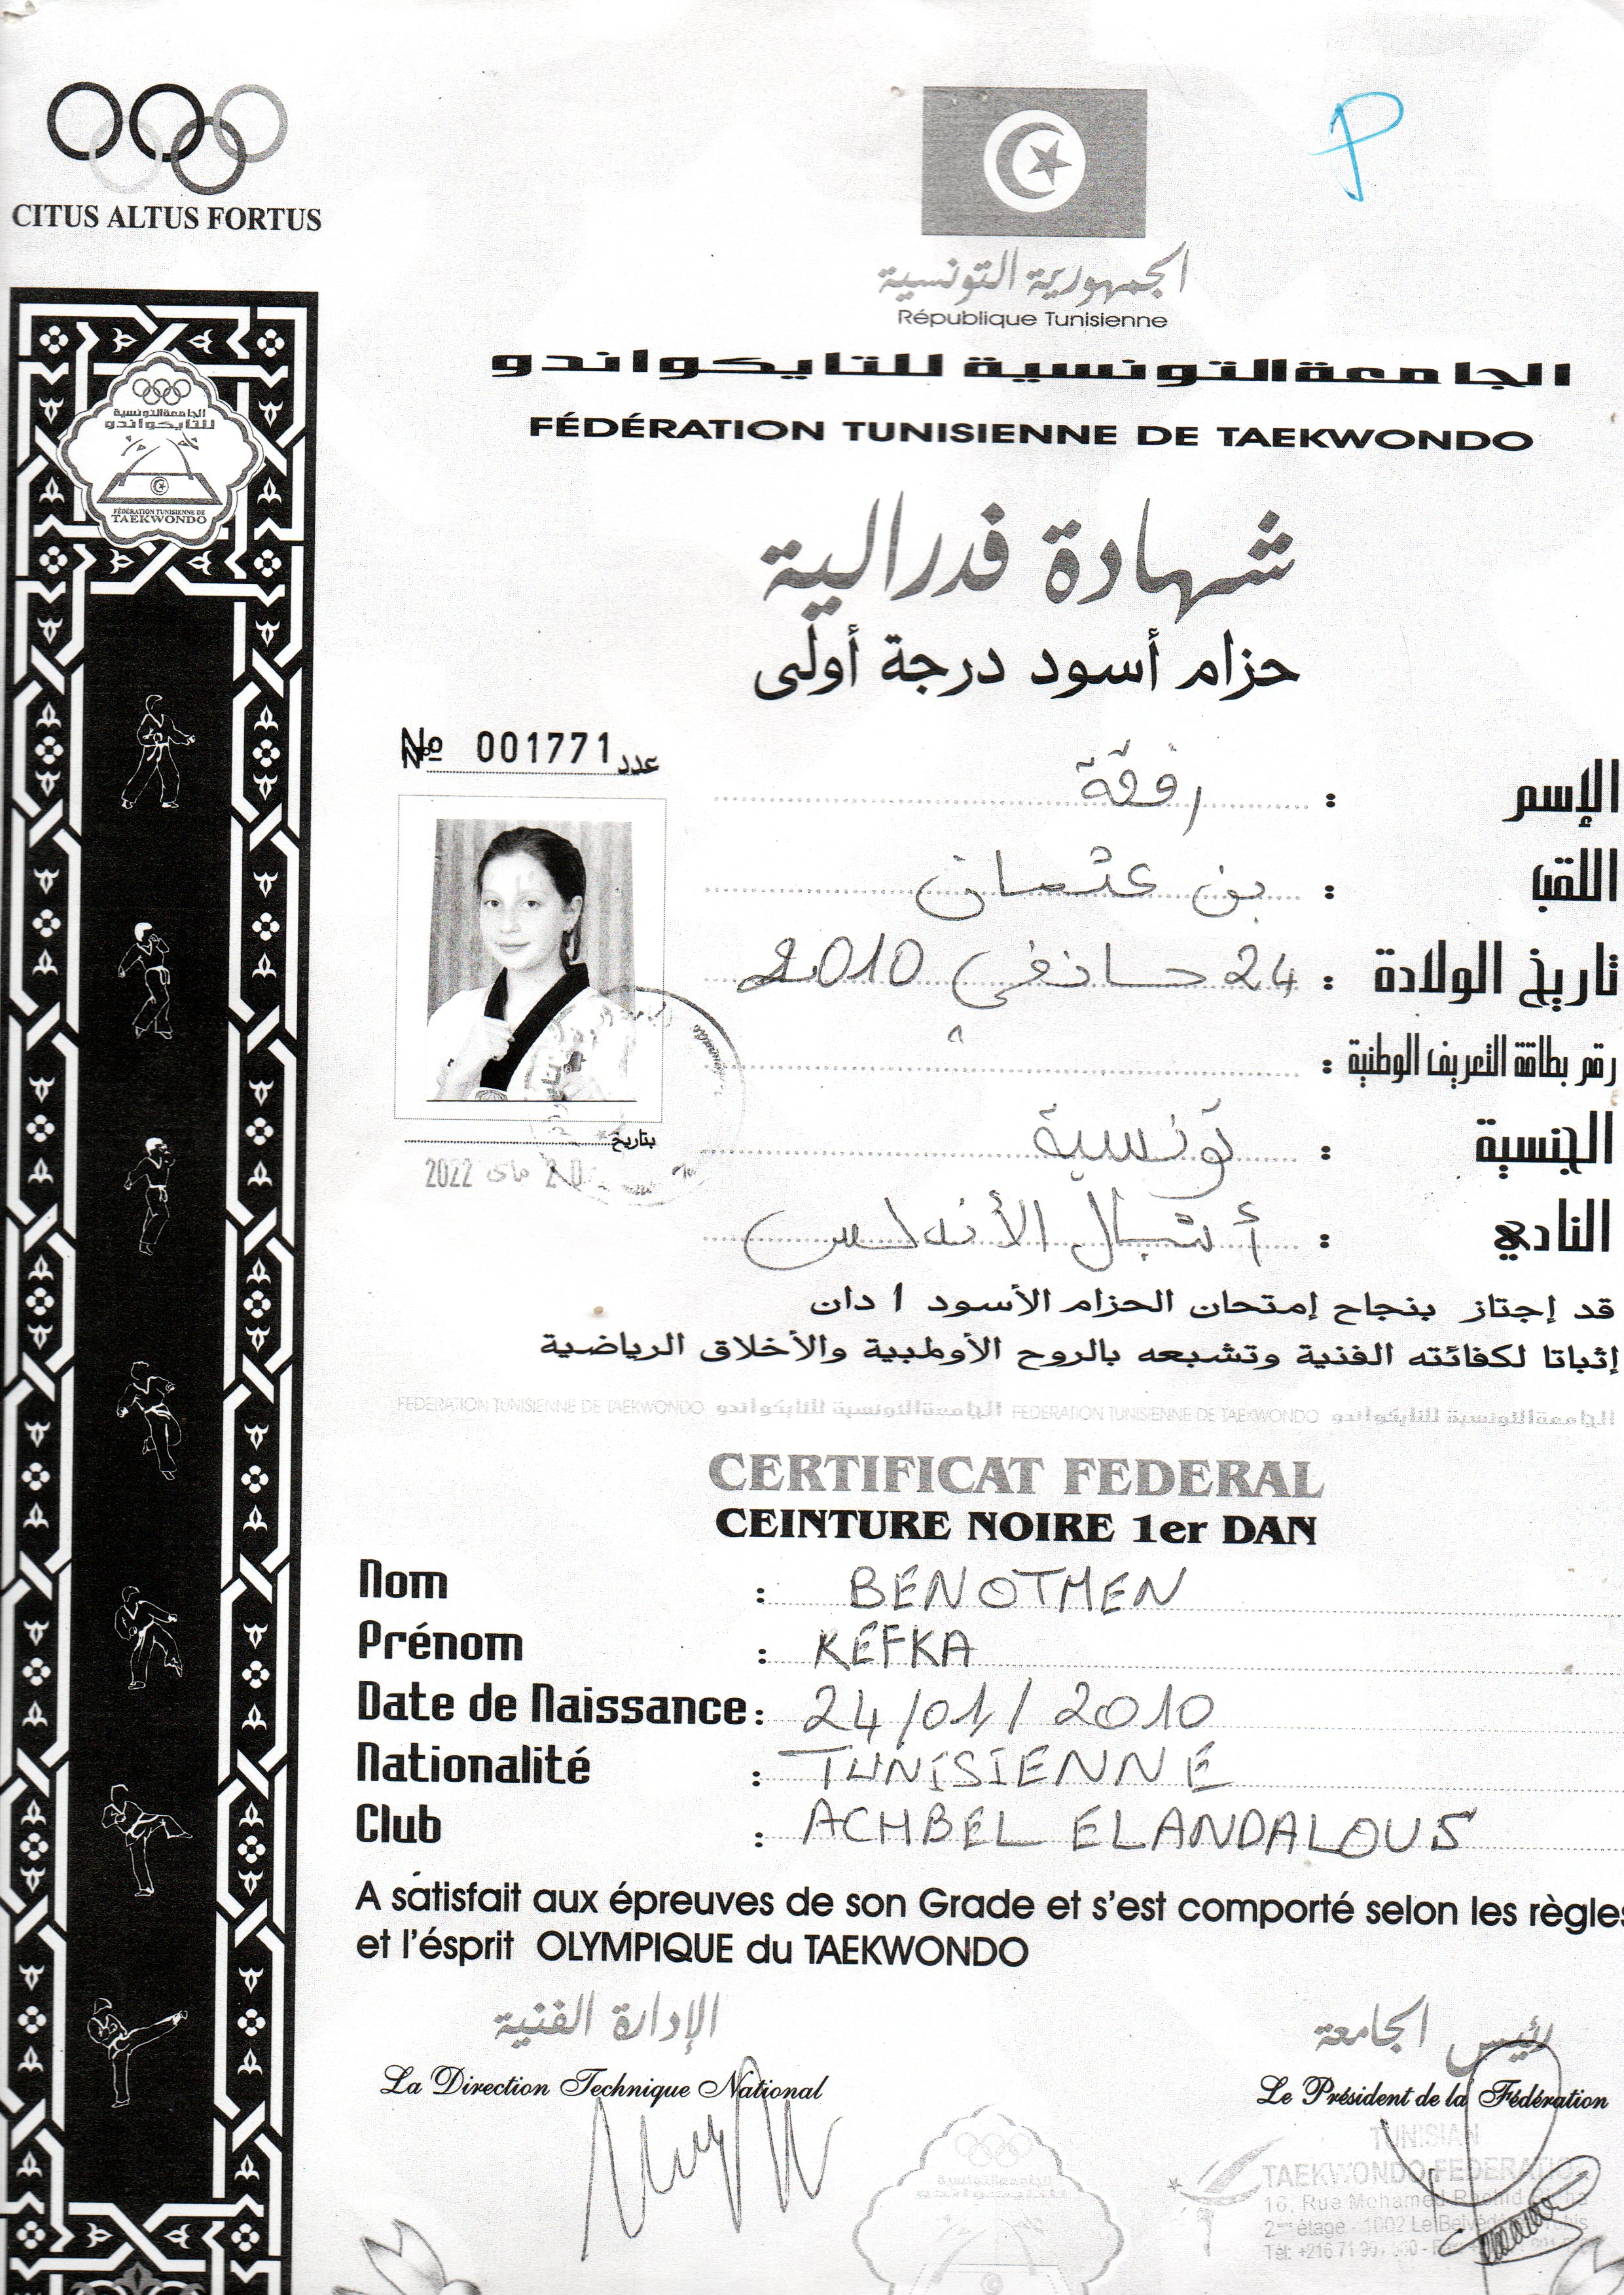 CITUS ALTUS FORTUS
P
الجمهورية التونسية
République Tunisienne
الجامعة التونسية للتايكواندو
FÉDÉRATION TUNISIENNE DE TAEKWONDO
الجامعة التونسية
للتايكواندو
FÉDÉRATION TUNISIENNE DE
TAEKWONDO
شهادة فدرالية
حزام أسود درجة أولى
№ 001771 عدد
الإسم : رفقة
اللقب : بن عثمان
تاريخ الولادة : 24 جانفي 2010
رقم بطاقة التعريف الوطنية :
بتاريخ
20 ماي 2022
الجنسية : تونسية
النادي : أشبال الأندلس
قد إجتاز بنجاح إمتحان الحزام الأسود 1 دان
إثباتا لكفائته الفنية وتشبعه بالروح الأولمبية والأخلاق الرياضية
FEDERATION TUNISIENNE DE TAEKWONDO الجامعة التونسية للتايكواندو FEDERATION TUNISIENNE DE TAEKWONDO الجامعة التونسية للتايكواندو
CERTIFICAT FEDERAL
CEINTURE NOIRE 1er DAN
Nom : BENOTMEN
Prénom : KEFKA
Date de Naissance : 24/01/2010
Nationalité : TUNISIENNE
Club : ACHBEL ELANDALOUS
A satisfait aux épreuves de son Grade et s'est comporté selon les règles
et l'ésprit OLYMPIQUE du TAEKWONDO
الإدارة الفنية
La Direction Technique National
رئيس الجامعة
Le Président de la Fédération
TUNISIAN
TAEKWONDO FEDERATIO
16, Rue Mohamed Rachid
2ème étage - 1002 Le Belvédère Tunis
Tél: +216 71
الجامعة التونسية
للتايكواندو